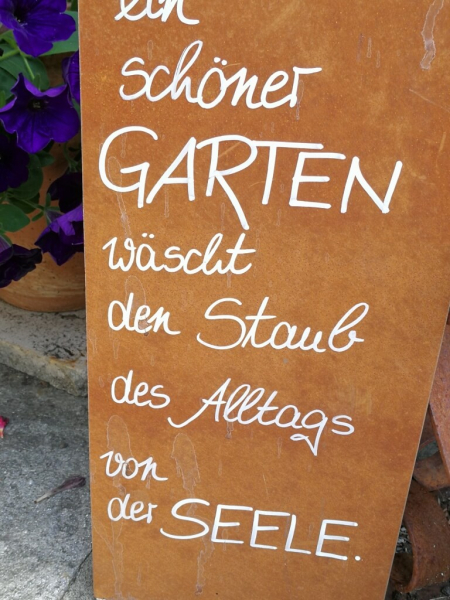 ein
schöner
GARTEN
wäscht
den Staub
des Alltags
von
der SEELE.